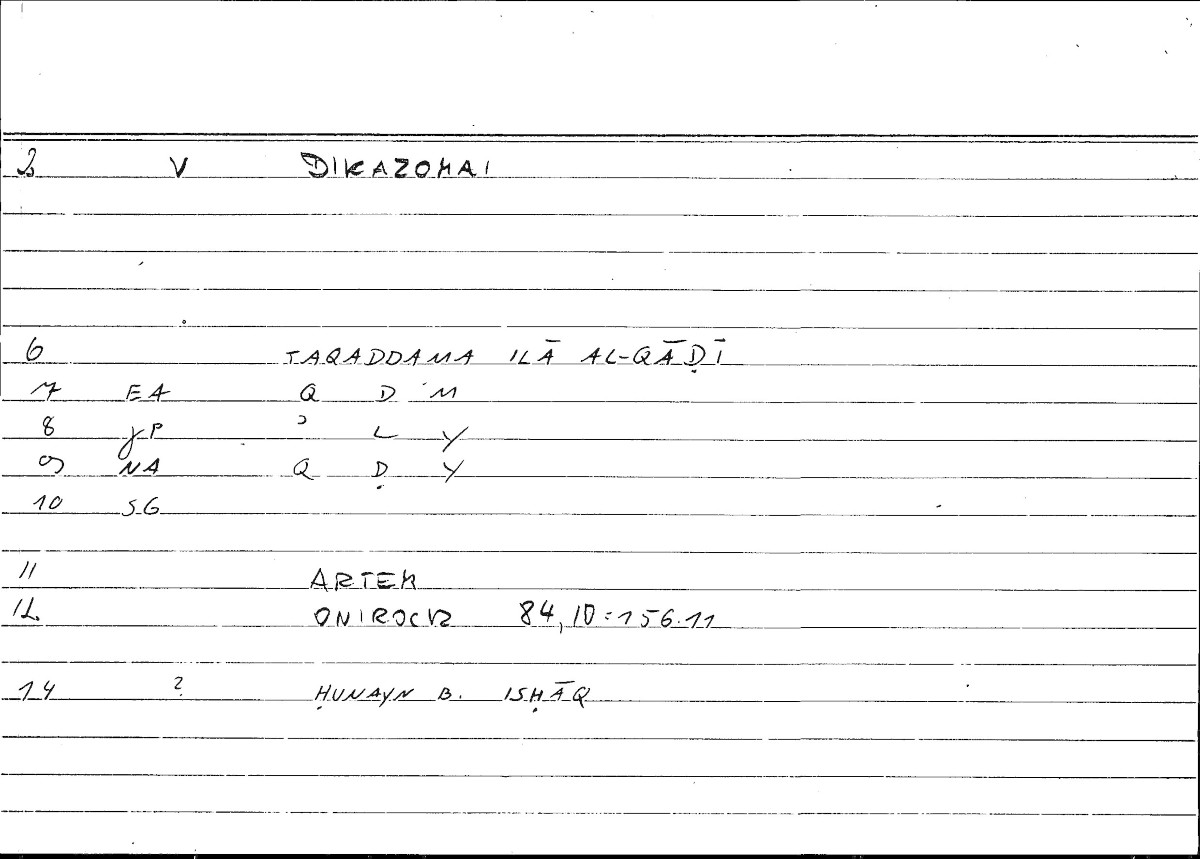 2 V DIKAZOMAI
6 TAQADDAMA ILĀ AL-QĀḌĪ
7 EA Q D M
8 gP ʾ L Y
9 NA Q Ḍ Y
10 SG
11 ARTEM
12 ONIROCR 84,10:156.11
14 ? ḤUNAYN B. ISḤĀQ